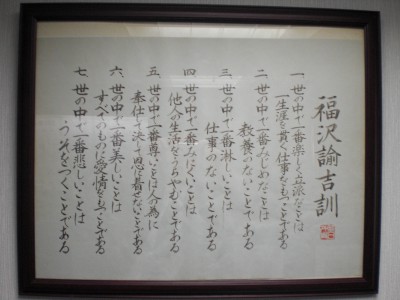 福沢諭吉訓
一、世の中で一番楽しく立派なことは
一生涯を貫く仕事をもつことである
二、世の中で一番みじめなことは
教養のないことである
三、世の中で一番淋しいことは
仕事のないことである
四、世の中で一番みにくいことは
他人の生活をうらやむことである
五、世の中で一番尊いことは人の為に
奉仕して決して恩に着せないことである
六、世の中で一番美しいことは
すべてのものに愛情をもつことである
七、世の中で一番悲しいことは
うそをつくことである